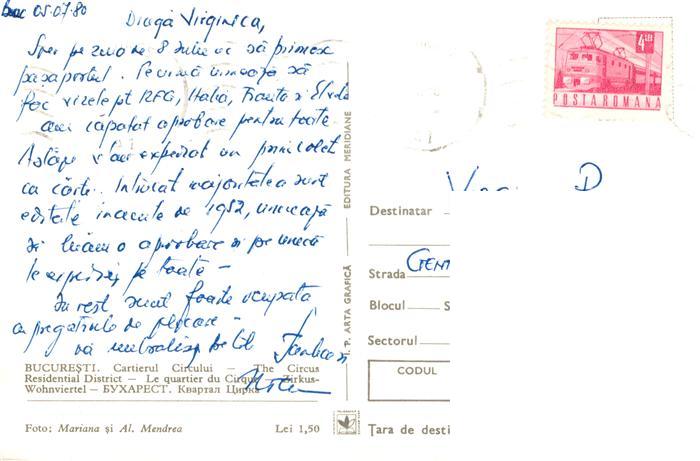 Buc 05.07.80
Dragă Virginica,
Sper pe ziua de 8 Iulie ac să primesc
pasaportul. Pe urmă urmează să
fac vizele pt RFG, Italia, Franta si
am căpatat aprobare pentru toate
v'am expediat un
cu cărti. Intrucat majoritatea sunt
editate inainte de 1952, urmează
să luăm o aprobare si pe urmă
le expediez pe toate –
In rest sunt foarte ocupata
cu pregatirile de plecare –
vă
4 LEI
POSTA ROMANA
EDITURA MERIDIANE
I. P. ARTA GRAFICĂ
Destinatar
Strada
Blocul S
Sectorul
CODUL
Țara de desti
BUCUREȘTI. Cartierul Circului — The Circus
Residential District — Le quartier du Cirque — Zirkus-
Wohnviertel — БУХАРЕСТ. Квартал Цирка
Foto; Mariana și Al. Mendrea Lei 1,50